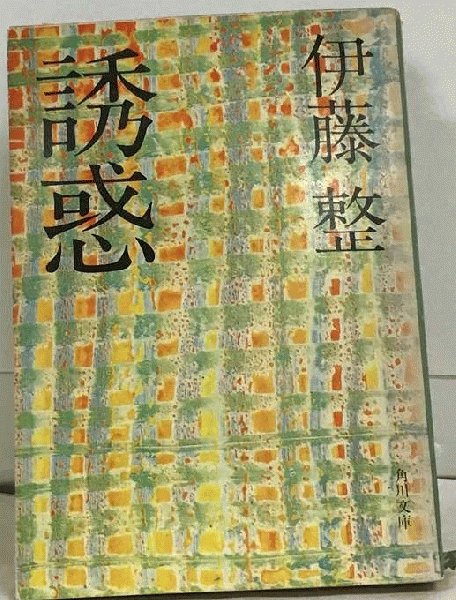 伊藤整
誘惑
角川文庫